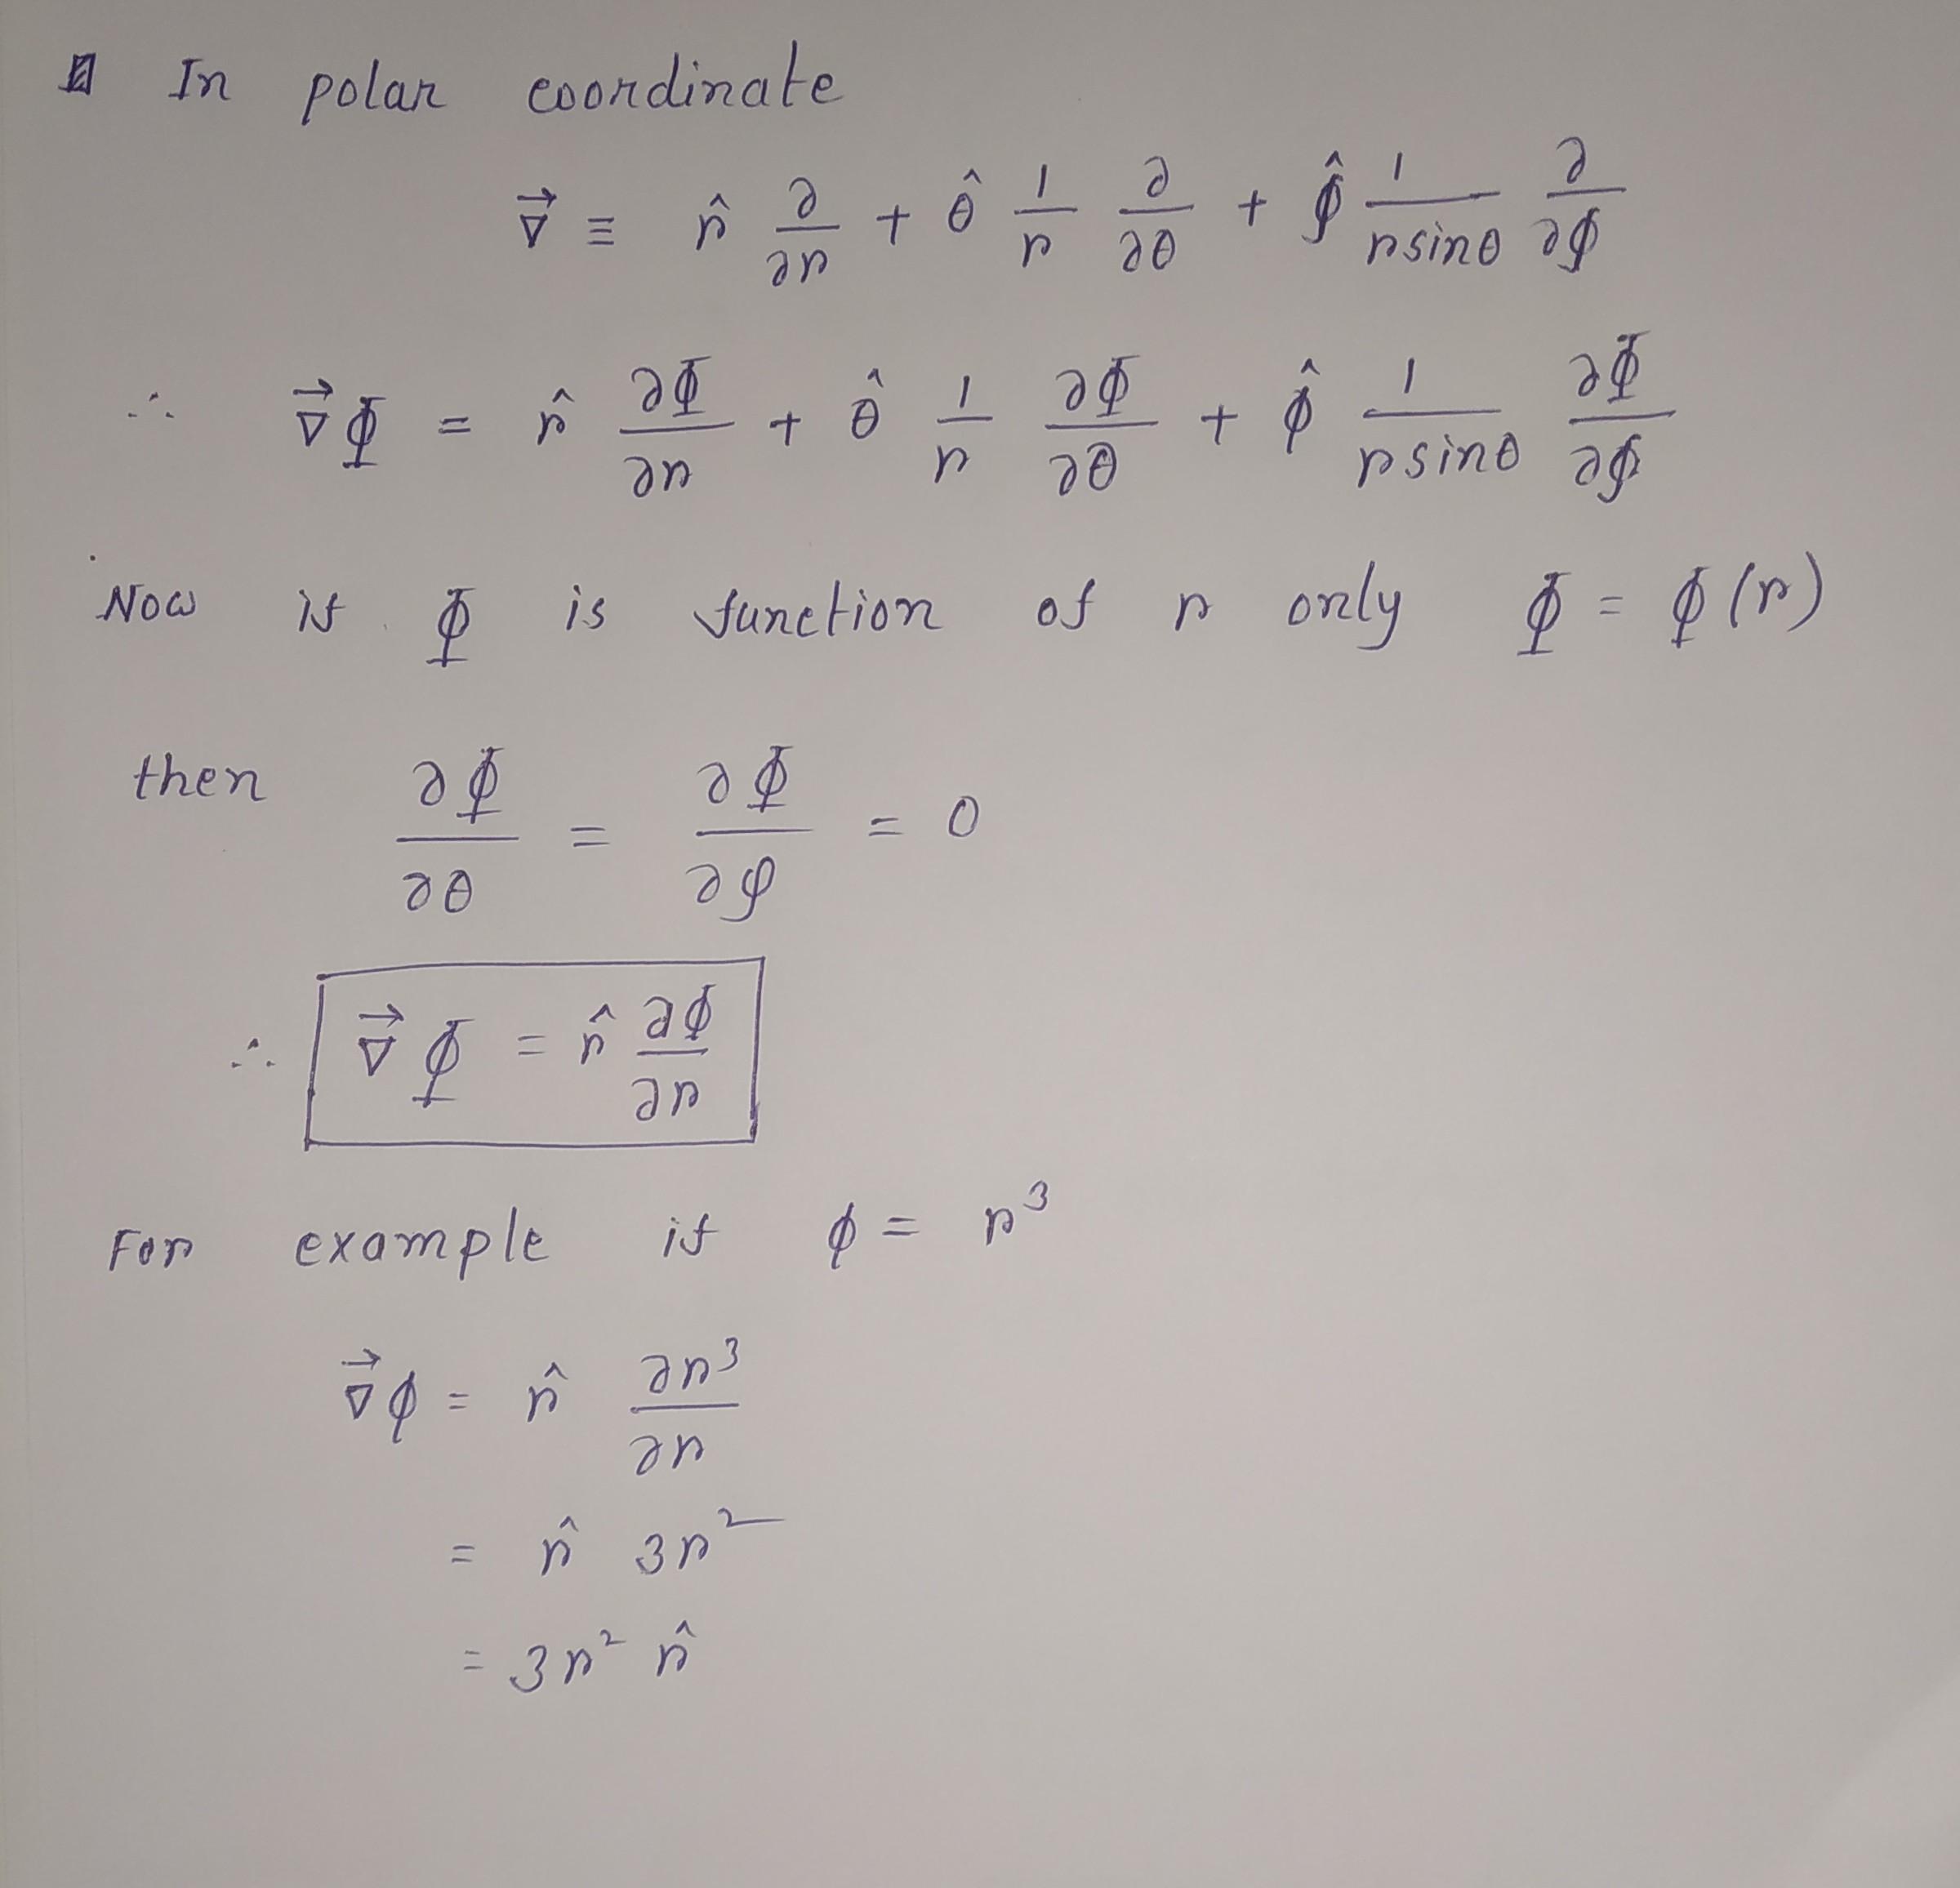 In polar coordinate
∇⃗ ≡ r̂ ∂/∂r + θ̂ 1/r ∂/∂θ + φ̂ 1/(r sinθ) ∂/∂φ
∴ ∇⃗Φ = r̂ ∂Φ/∂r + θ̂ 1/r ∂Φ/∂θ + φ̂ 1/(r sinθ) ∂Φ/∂φ
Now if Φ is function of r only Φ = ϕ(r)
then ∂Φ/∂θ = ∂Φ/∂φ = 0
∴ ∇⃗Φ = r̂ ∂ϕ/∂r
For example if ϕ = r³
∇⃗ϕ = r̂ ∂r³/∂r
= r̂ 3r²
= 3r² r̂